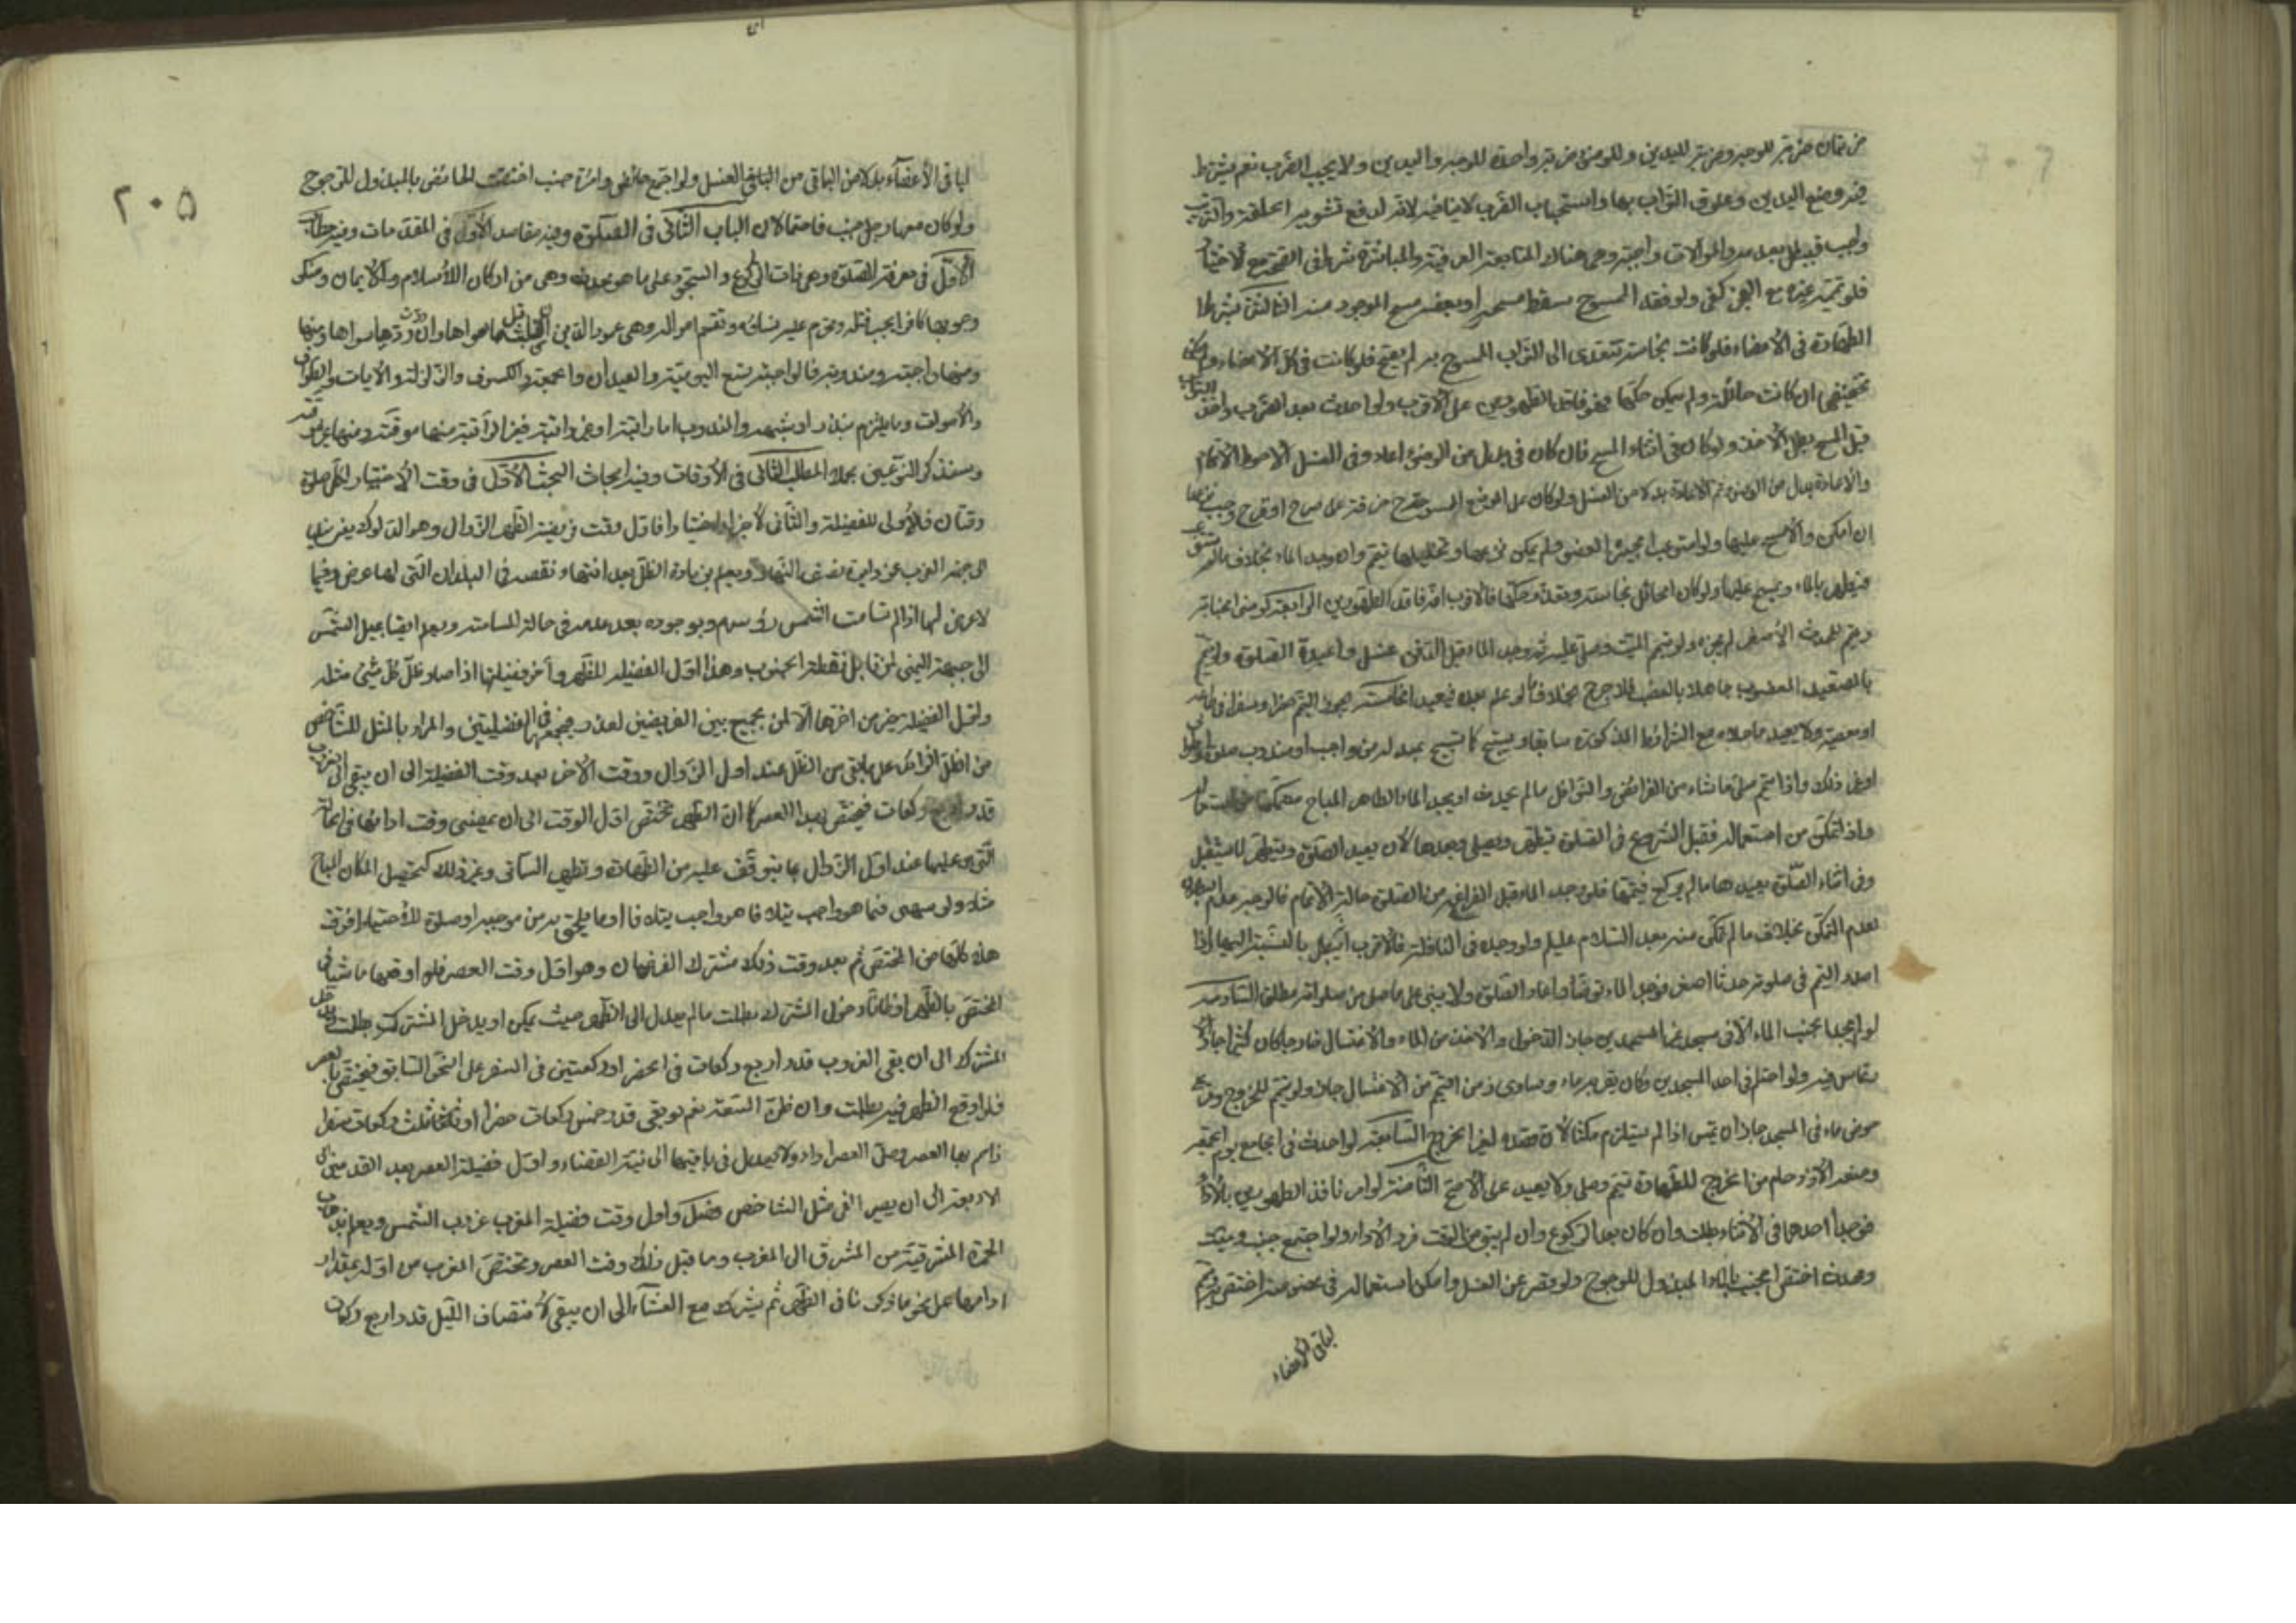 ضربتان ضربة للوجه وضربة لليدين وللوضوء ضربة واحدة للوجه واليدين ولا يجب القرب نعم يشترط
فيه وضع اليدين وعلوق التراب بها واستحباب لا ينافيه لانه لدفع تشويه الخلقة والترتيب
واجب فيبطل بعدمه والموالات واجبة وهي هناك المتابعة العرفية والمباشرة شرط في الصحة مع الاختيار
فلو يممه غيره مع العجز كفى ولو فقد الممسوح سقط مسحه او بعضه مسح الموجود منه الثالثة يشترط
الطهارة في الأعضاء فلو كانت نجاسته تتعدى الى التراب الممسوح به لم يصح فلو كانت في كل الاعضاء
ان كانت حائلة ولم يمكن حكها فهو فاقد الطهورين على الأقرب ولو احدث بعد الضرب واخذ التراب
قبل المسح بطل الأخذ ولو كان في اثناء المسح فان كان في بدل من الوضوء اعاد وفي الغسل الاحوط الاتمام
والاعادة بدل من الوضوء ثم الاعادة بدلا من الغسل ولو كان على الموضع الممسوح خرقة على جرح او قرح وجب نزعها
ان امكن والا مسح عليها ولو استوعب الجبيرة العضو فلم يمكن نزعها وتخليلها تيمم وان وجد الماء بخلاف
بالماء ويمسح عليها ولو كان الحائل نجاسة وتعذر حكها فالاقرب انه فاقد الطهورين الرابعة لو نسي الجنابة
وتيمم للحدث الأصغر لم يجزه ولو تيمم الميت وصلي عليه ثم وجد الماء قبل الدفن غسل واعيدة الصلوة ولو تيمم
بالصعيد المغصوب جاهلا بالغصب فلا حرج بخلاف ما لو علم بعده فيعيد الخامسة يجوز التيمم حضرا وسفرا في طاعة
او معصية ولا يعيد ما صلاه مع الشرائط المذكورة سابقا ويستبيح كما يستبيح بمبدله من واجب او مندوب صلوة او طواف
او غير ذلك واذا تيمم صلى ما شاء من الفرائض والنوافل ما لم يحدث او يجد الماء الطاهر المباح متمكنا من استعماله
واذ تمكن من استعماله فقبل الشروع في الصلوة يتطهر ويصلي وبعدها لا يعيد الصلوة ويتطهر لما يستقبل
وفي اثناء الصلوة يعيدها ما لم يركع فيتمها فلو وجد الماء قبل الفراغ من الصلوة حالة الاتمام فالوجه عدم البطلان
لعدم التمكن بخلاف ما لم تمكن منه بعد السلام عليكم ولو وجده في النافلة فالاقرب انه يبطل بالنسبة اليها واذا
احدث المتيمم في صلوته حدثا اصغر فوجد الماء توضأ واعاد الصلوة ولا يبني على ما صلى من صلواته مطلقا السادسة
لو لم يجد الجنب الماء الا في مسجد غير المسجدين جاز الدخول والاخذ من الماء والاغتسال خارجا وان كان كثيرا جاز
فيه ولو احتلم في احد المسجدين وكان بقربه ماء وساوى زمن التيمم زمن الاغتسال جاز ولو تيمم للخروج
حوض ماء في المسجد جاز ان يتمس اذا لم يستلزم مكثا لا ان قصده لغير الخروج السابعة لو احدث في الجامع يوم الجمعة
ومنعه الازدحام من الخروج للطهارة تيمم وصلى ولا يعيد على الاصح الثامنة لو امر فاقد الطهورين بالأداء
فوجد احدهما في الاثناء بطلت وان كان بعد الركوع وان لم يبق من الوقت فرد الأداء ولو اجتمع جنب وميت
ومحدث اختص الجنب بالماء المبذول للاحوج ولو قصر عن الغسل وامكن استعماله في بعضه اختص به ويتمم
لباقي الأعضاء
٢٠٥
لباقي الأعضاء بدلا من الباقي من الغسل ولو اجتمع حائض وامرأة جنب اختصت الحائض بالمبذول للاحوج
ولو كان معها رجل جنب فاحتمالان الباب الثاني في الصلوة وفيه مقاصد الأول في المقدمات وفيه مطالب
الأول في معرفة الصلوة وهي ذات الركوع والسجود على ما هو وهي من اركان الاسلام والايمان ومنكر
وجوبها كافر يجب قتله وتحرم عليه نسائه وتقسم امواله وهي عمود الدين ان قبلت قبل ما سواها وان ردت رد ما سواها ومنها
ومنها واجبة ومندوبة فالواجبة تسع اليومية والعيدان والجمعة والكسوف والزلزلة والآيات والطواف
والأموات وما يلتزم بنذر او شبهه والمندوب اما راتبة او غير راتبة فغير الراتبة منها موقتة ومنها غير موقتة
وسنذكر النوعين بجملة المطلب الثاني في الأوقات وفيه ابحاث البحث الأول في وقت الاختيار لكل صلوة
وقتان فالاولى للفضيلة والثاني للاجزاء اختيارا فاول وقت فريضة الظهر الزوال وهو الدلوك
الى جهة الغرب عن دايرة نصف النهار ويعلم بزيادة الظل بعد انتهاء نقصه في البلدان التي لها عرض وفيما
لا عرض لها اذا لم تسامت الشمس رؤسهم وبوجوده بعد عدمه في حالة المسامتة ويعلم ايضا بميل الشمس
الى جهة اليمنى لمن قابل نقطة الجنوب وهذا اول الفضيلة للظهر وآخر فضيلتها اذا صار ظل كل شيئ مثله
واول الفضيلة خير من اخرها الا لمن يجمع بين الفريضتين لعذر فيجمعهما في الفضيلتين والمراد بالمثل للشاخص
من الظل الزائد على ما بقي من الظل عند اول الزوال ووقت الآخر بعد وقت الفضيلة الى ان يبقى الى الغروب
قدر اربع ركعات فيختص بهذا العصر كما ان الظهر تختص اول الوقت الى ان يمضي وقت ادائها في الحالة
التي هي عليها عند اول الزوال بما يتوقف عليه من الطهارة وتطهير الساتر وغير ذلك كتحصيل المكان المباح
مثلا ولو سهى فيما هو واجب يتلافاه وواجب يتلافا او ما يلحق به من موجبه او صلوة للاحتياط فوقت
هذه كلها من المختص ثم بعد وقت ذلك مشترك الفرضان وهو اول وقت العصر فلو اوقعها ناسيا في
المختص بالظهر او ظانا دخول المشترك بطلت ما لم يعدل الى الظهر حيث يمكن او يدخل المشترك
المشترك الى ان يبقى الغروب قدر اربع ركعات في الحضر او ركعتين في السفر على النحو السابق فيختص بالعصر
فلو اوقع الظهر فيه بطلت وان ظن السعة نعم لو بقي قدر خمس ركعات حضرا او ثلث ركعات سفرا
زاحم بها العصر وصلى العصر اداء ولا يعدل في باقيها الى نية القضاء واول فضيلة العصر بعد القدمين الى
الاربعة الى ان يصير الفئ مثل الشاخص فضل واول وقت فضيلة المغرب غروب الشمس ويعلم بذهاب
الحمرة المشرقية من المشرق الى المغرب وما قبل ذلك وقت العصر وتختص المغرب من اوله بمقدار
ادائها على نحو ما ذكرنا في الظهر ثم يشترك مع العشاء الى ان يبقى لانتصاف الليل قدر اربع ركعات